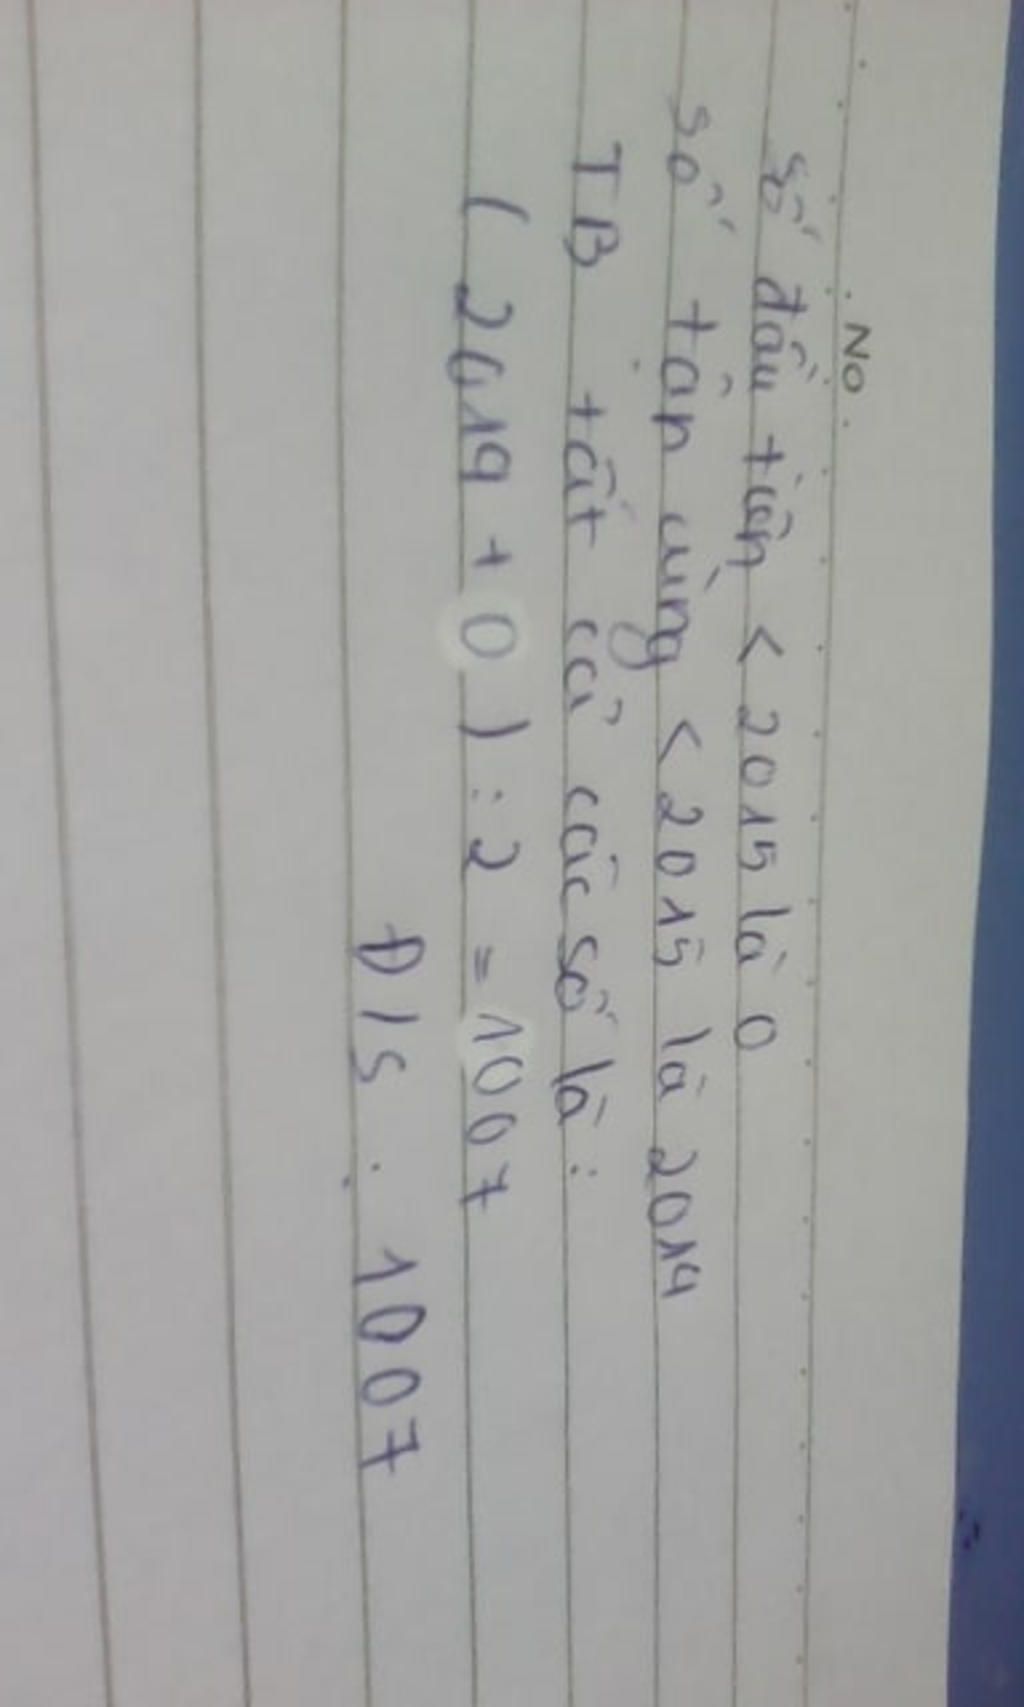 No.
số đầu tiên < 2015 là 0
số tận cùng < 2015 là 2014
TB tất cả các số là :
( 2014 + 0 ) : 2 = 1007
Đ/S : 1007